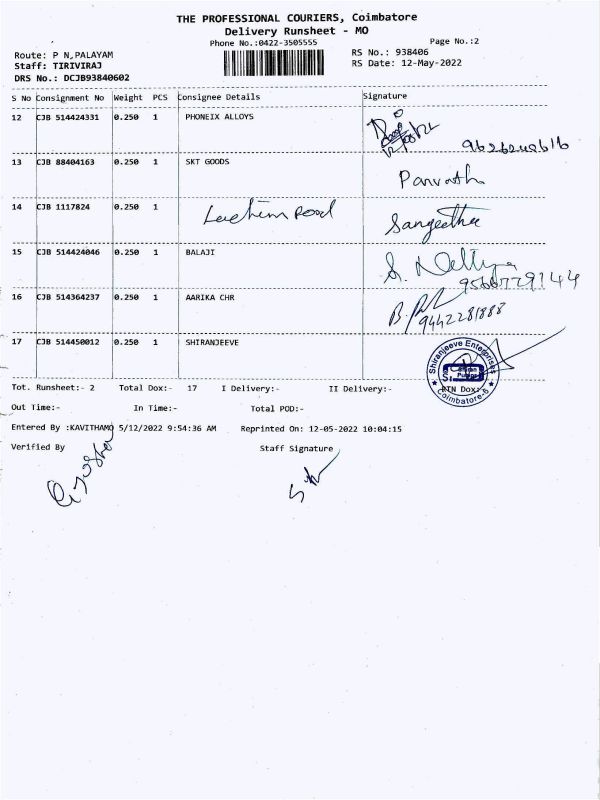 THE PROFESSIONAL COURIERS, Coimbatore
Delivery Runsheet - MO
Phone No.:0422-3505555
Page No.:2
Route: P N,PALAYAM
RS No.: 938406
Staff: TIRIVIRAJ
RS Date: 12-May-2022
DRS No.: DCJB93840602
S No Consignment No Weight PCS Consignee Details Signature
12 CJB 514424331 0.250 1 PHONEIX ALLOYS
13 CJB 88404163 0.250 1 SKT GOODS
14 CJB 1117824 0.250 1 Road Sangeetha
15 CJB 514424046 0.250 1 BALAJI S.
9566729144
16 CJB 514364237 0.250 1 AARIKA CHR B.
9442281888
17 CJB 514450012 0.250 1 SHIRANJEEVE
Shiranjeeve Enterprises
Coimbatore-6
Tot. Runsheet:- 2 Total Dox:- 17 I Delivery:- II Delivery:- RTN Dox:
Out Time:- In Time:- Total POD:-
Entered By :KAVITHAMO 5/12/2022 9:54:36 AM Reprinted On: 12-05-2022 10:04:15
Verified By Staff Signature